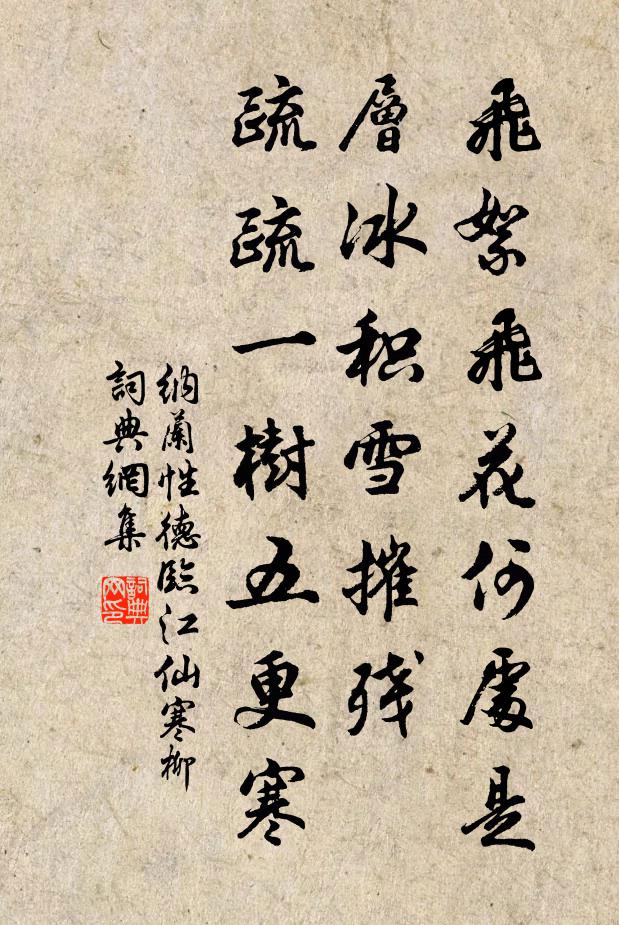 飛絮飛花何處是
層冰积雪摧残
疏疏一樹五更寒
纳蘭性德臨江仙寒柳
詞典網集
詞典網印